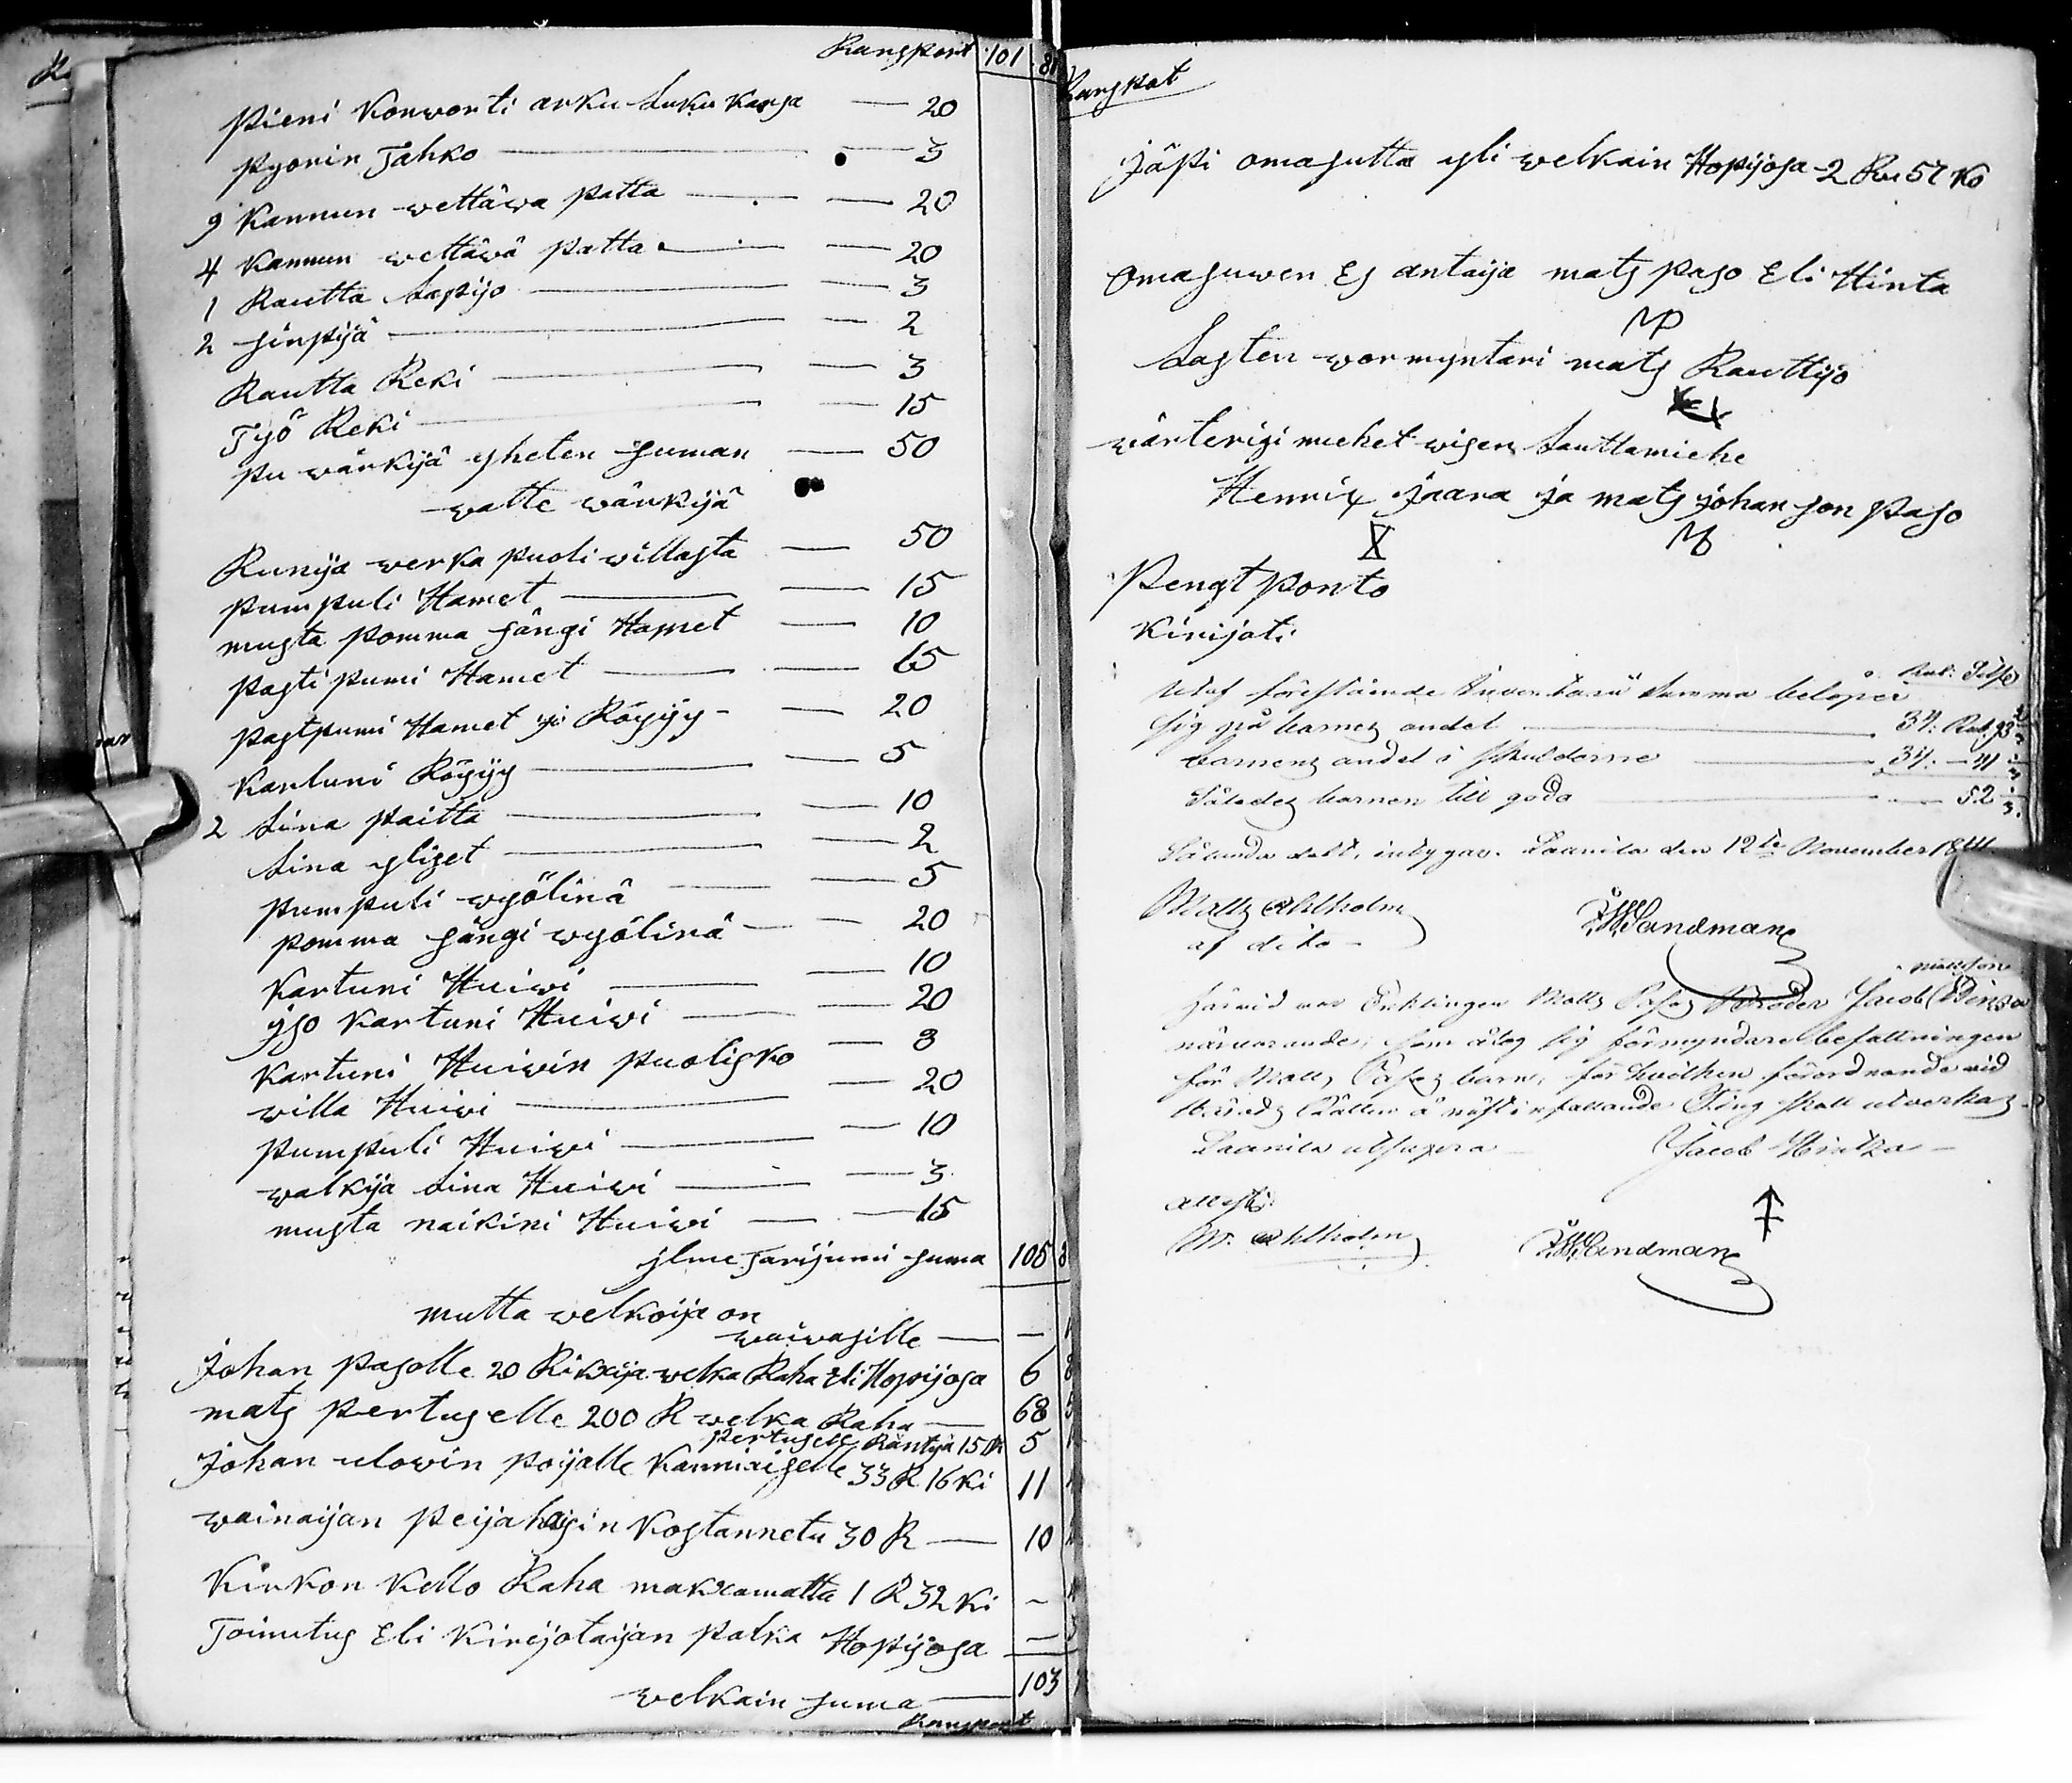 Rangport 101 8
Pieni Konworti arku Luku Kanga — 20
Pyorin Tahko — 3
9 Kannun wettäwa patta — 20
4 Kannun wettäwä patta — 20
1 Rautta Lapijo — 3
2 sirpijä — 2
Rautta Reki — 3
Työ Reki — 15
Pu wärkijä yheten suman — 50
watte wärkijä
Runija werka puoli willasta — 50
Pumpuli Hamet — 15
musta pomma sängi Hamet — 10
Pasti pumi Hamet — 65
Pastpumi Hamet ja Röyijy — 20
Kartuni Röyijy — 5
2 Lina paitta — 10
Lina yliset — 2
Pumpuli wyölinä — 5
pomma sängi wyölinä — 20
Kartuni Huiwi — 10
yso Kartuni Huiwi — 20
Kartuni Huiwin puolisko — 8
willa Huiwi — 20
Pumpuli Huiwi — 10
walkija Lina Huiwi — 3
musta naikini Huiwi — 15
suma 105 8
mutta welkoija on
waiwasille — —
Johan Pasolle 20 Rixija welka Raha Eli Hopijosa 6 8
mats Pertuselle 200 R welka Raha — 68
Pertuselle Räntija 15 R 5
Johan ulowin poijalle Kanniaiselle 33 R 16 Ki 11
wainaijan Peijahaisin Kostannetu 30 R — 10
Kirkon Kello Raha maxamatta 1 R 32 Ki —
Toimitus Eli Kirijotaijan palka Hopijosa —
welkain suma — 103
Ransport
Rangpot
Jäpi omasutta yli welkain Hopijosa 2 Ru 57 Ko
Omasuwen Es antaija mats Paso Eli Hinta
Lasten wormyntari mats Rauttijo
wärterigi miehet wisen Lauttamiehe
Henrix Jaara ja mats johan son Paso
X
Pengt Ponto
Kirijoti
Utaf förestående Inventarii Summa belöper Rub: Silfr
sig på barnens andel — 37. Rub. 93
barnens andel i skulderne — 37. — 41
Således barnen till godo — 52
Sålunda intygar. Laanila den 12te November 18
Matts Ahlholm
af dito
Sandman
Härvid var Enklingen Matts Pasos Broder Jacob Mattsson Hintza
närvarande, som åtog sig förmyndare befattningen
för Matts Pasos barn, för hvilken förordnande vid
Härads Rätten å näst infallande Ting skall utverkas
Laanila utsupra Jacob Hintza
attest:
M. Ahlholm
Sandman